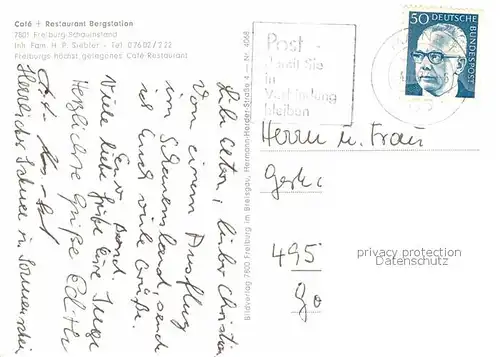 Café + Restaurant Bergstation
7801 Freiburg-Schauinsland
Inh. Fam. H. P. Siebler - Tel. 07602/222
Freiburgs höchst gelegenes Café-Restaurant
Liebe Eltern, lieber Christian
Von einem Ausflug
im Schauinsland, sende
ich Euch viele Grüße.
Euer Bernd.
Viele liebe Grüße Eure Inge
Herzlichste Grüße Edith
Herrlicher Schnee u. Sonnenschein
Bildverlag 7800 Freiburg im Breisgau, Hermann-Herder-Straße 4 — Nr. 4068
Post -
damit Sie
in
Verbindung
bleiben
50 DEUTSCHE
BUNDESPOST
Herrn u. Frau
495
privacy protection
Datenschutz